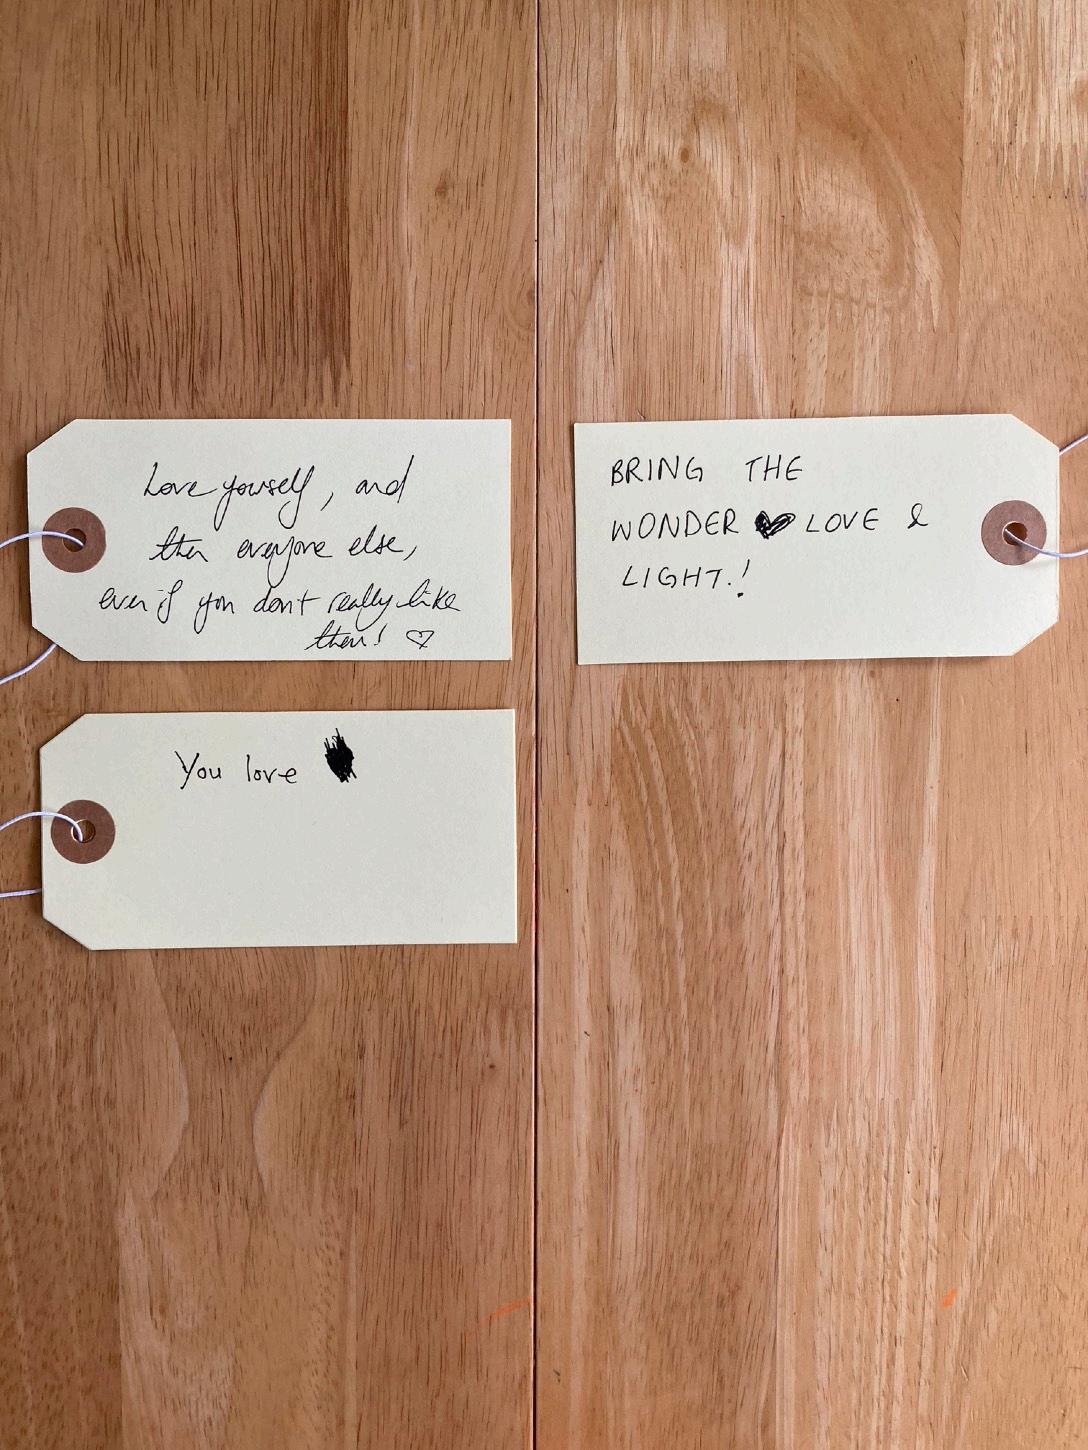 Love yourself, and
then everyone else,
even if you don't really like
them! ♡
BRING THE
WONDER ♥ LOVE &
LIGHT.!
You love